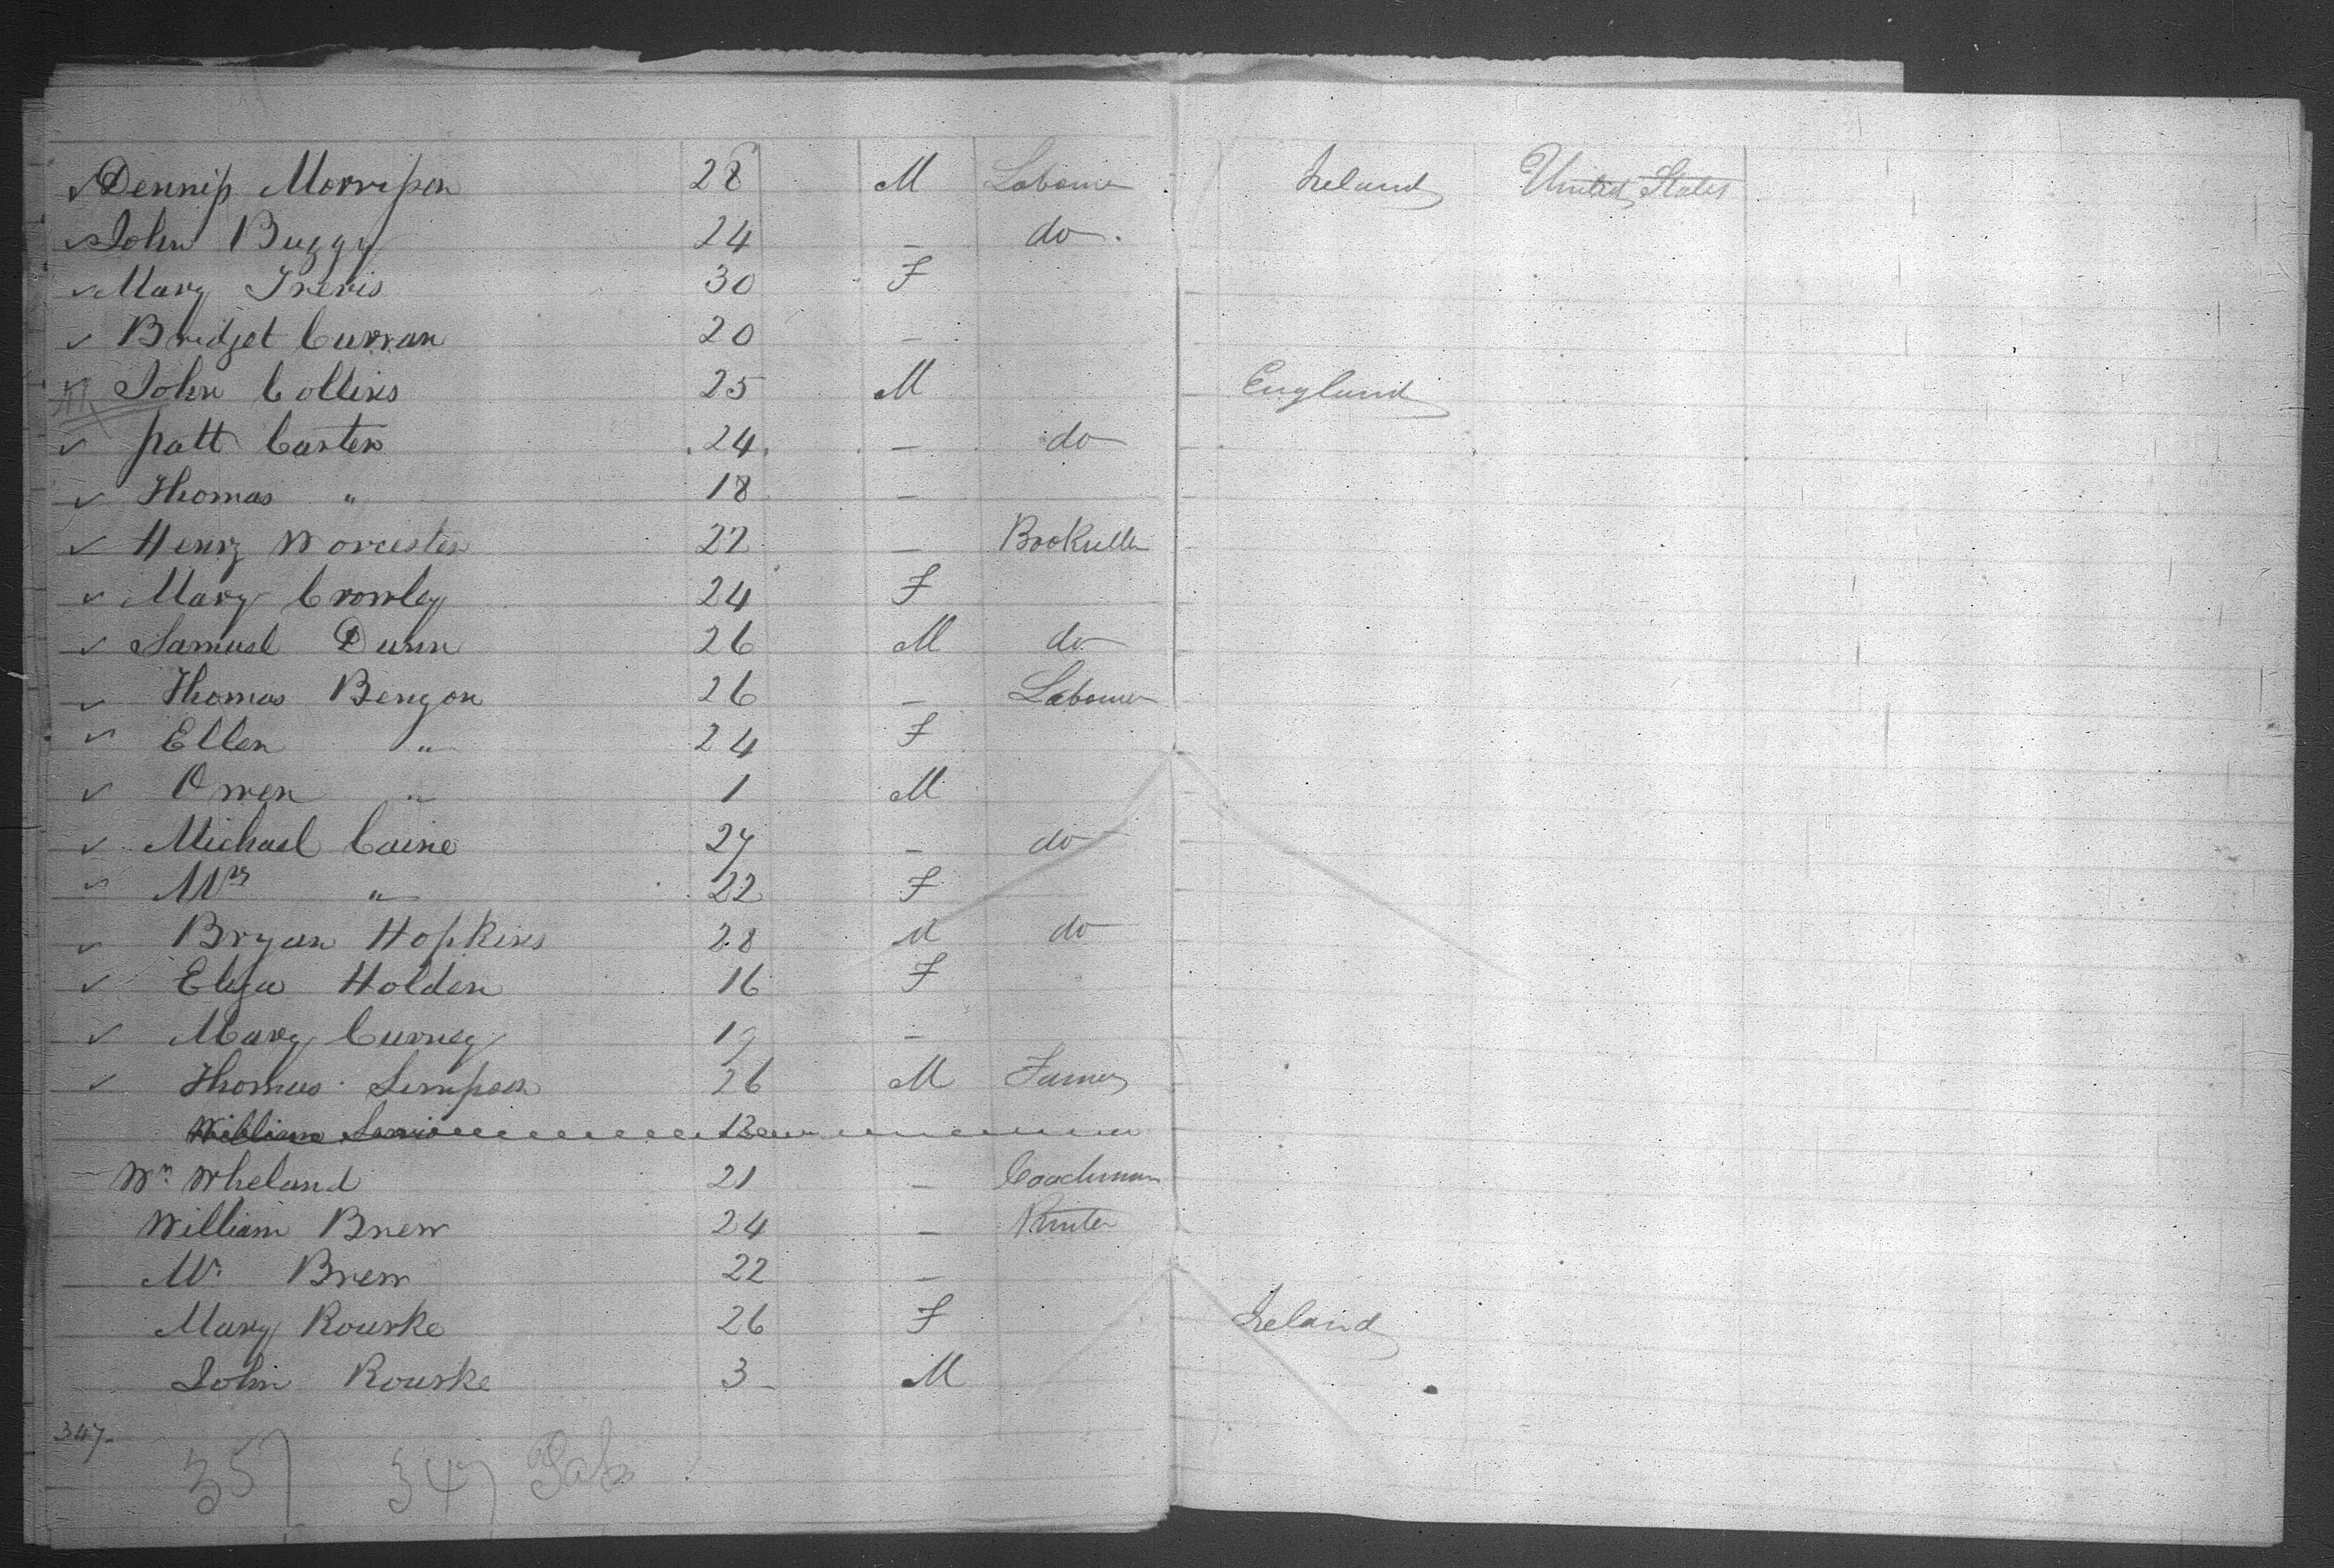 Dennis Morrison 28 M Labourer Ireland United States
John Buggy 24 - do
Mary Treris 30 F
Bridget Curran 20 -
John Collins 25 M England
Patt Carter 24 - do
Thomas " 18 -
Henry Worcester 22 - Bookseller
Mary Crowley 24 F
Samuel Dunn 26 M do
Thomas Benyon 26 - Labourer
Ellen " 24 F
Owen " 1 M
Michael Caine 27 - do
Mrs " 22 F
Bryan Hopkins 28 M do
Eliza Holden 16 F
Mary Curney 19 -
Thomas Simpson 26 M Farmer
William 12
Wm Wheland 21 - Coachman
William Brew 24 - Printer
Mr Brew 22 -
Mary Rourke 26 F Ireland
John Rourke 3 M
347
357 347